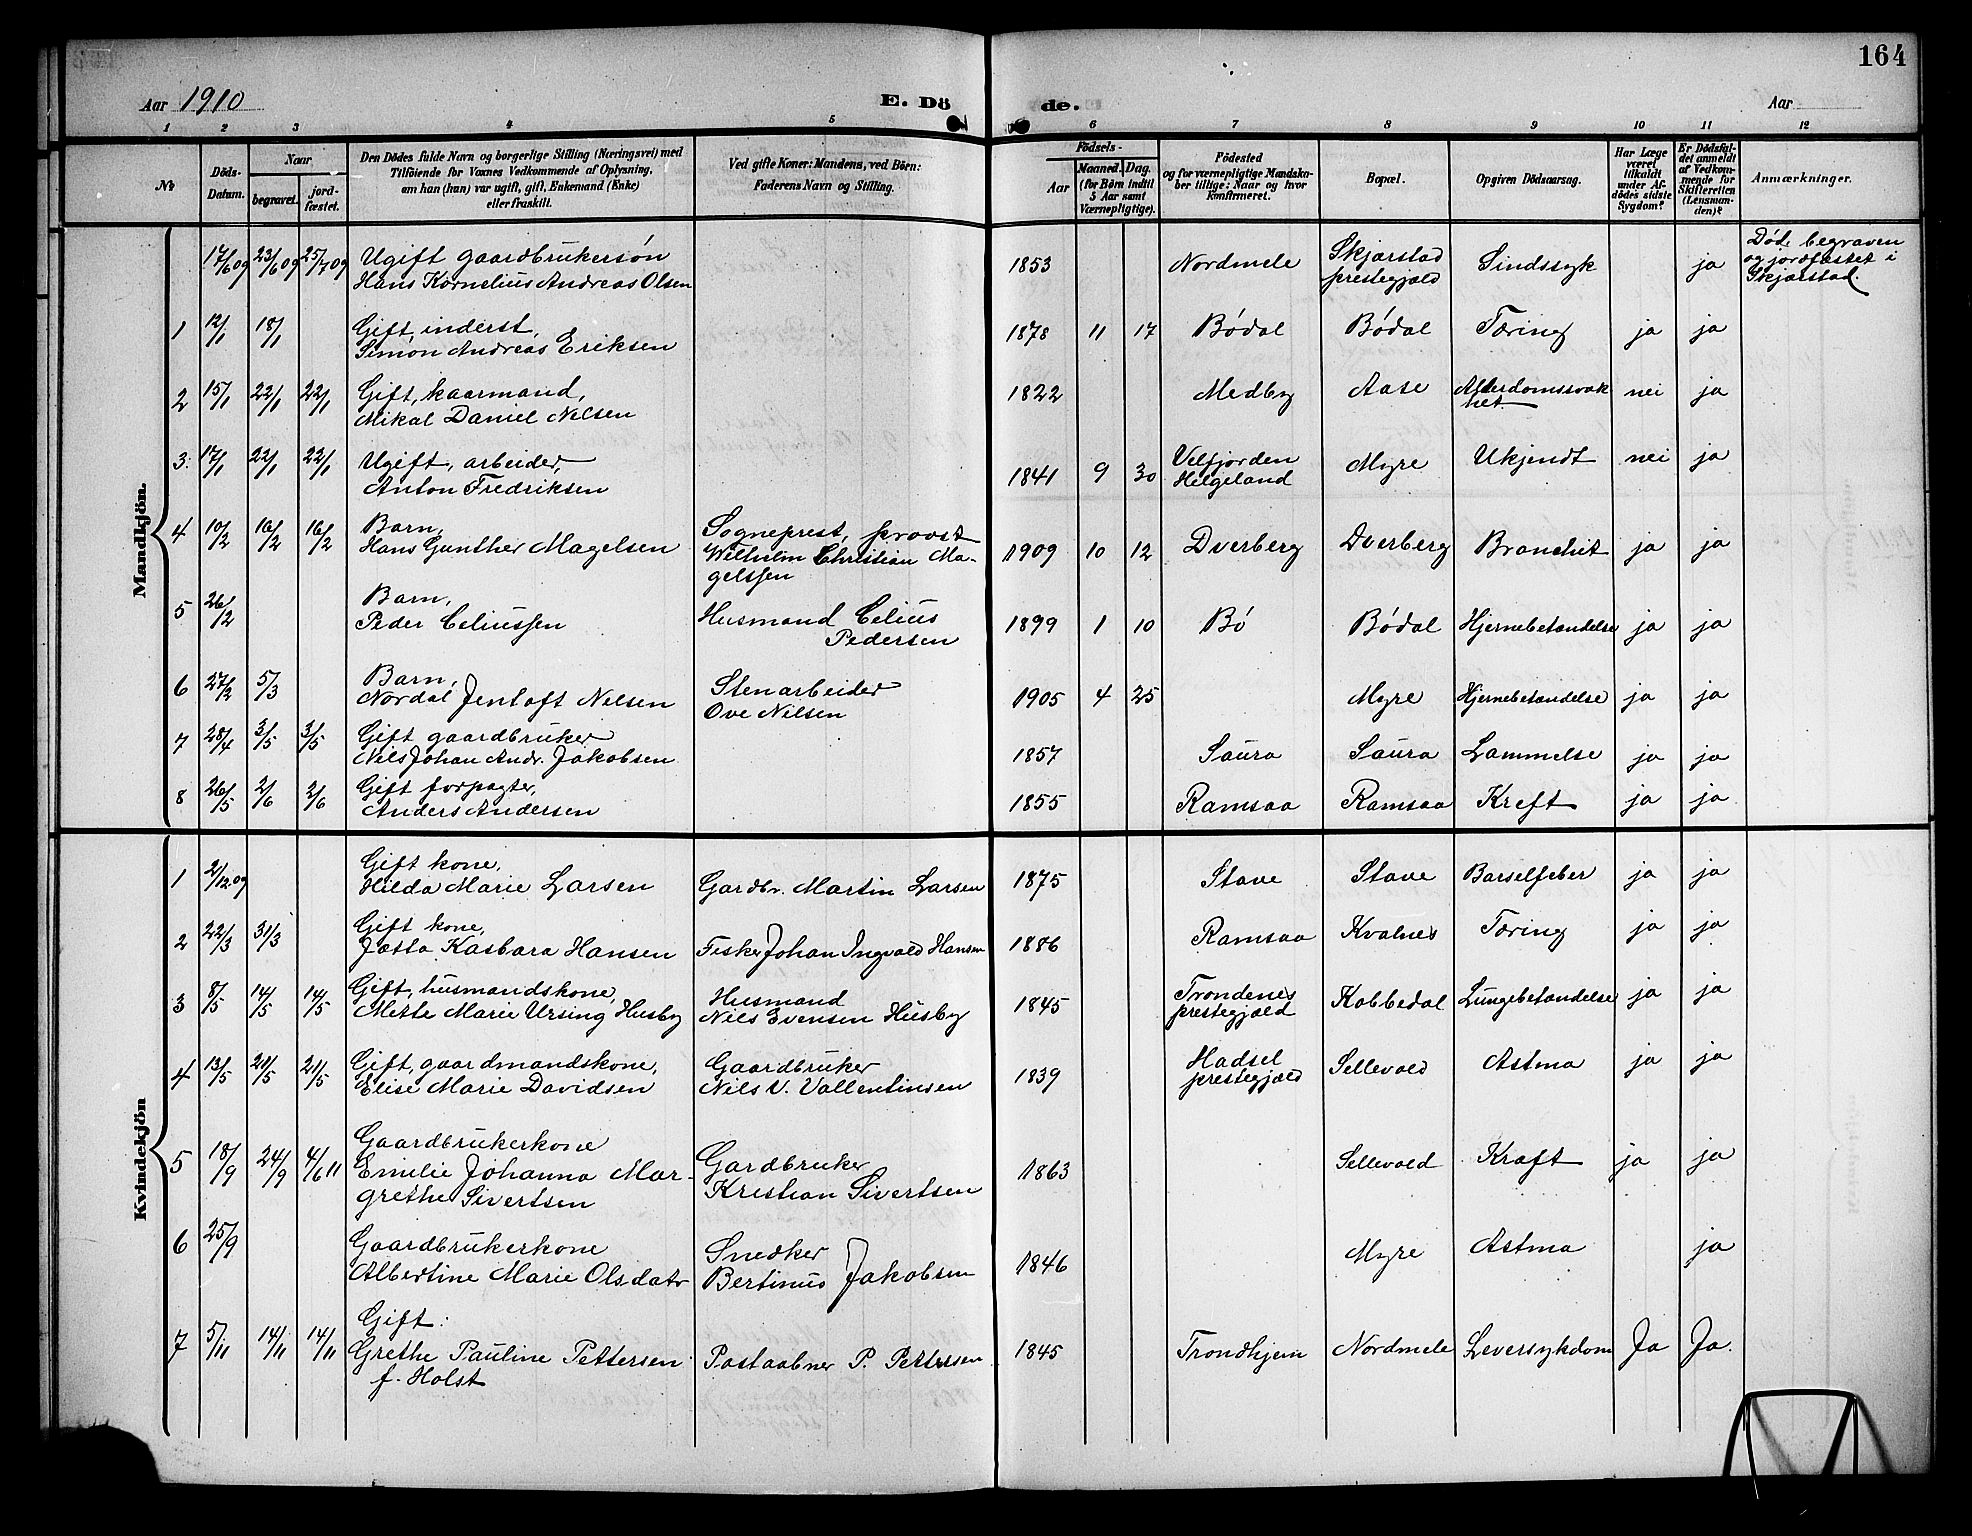 164
Aar 1910 E. Dö de. Aar
1 2 3 4 5 6 7 8 9 10 11 12
No
Döds-
Datum.
Naar
begravet.
jord-
fæstet.
Den Dödes fulde Navn og borgerlige Stilling (Næringsvei) med
Tilföiende for Voxnes Vedkommende af Oplysning,
om han (hun) var ugift, gift, Enkemand (Enke)
eller fraskilt.
Ved gifte Koner: Mandens, ved Börn:
Faderens Navn og Stilling.
Födsels-
Aar
Maaned. Dag.
(for Börn indtil
5 Aar samt
Værnepligtige).
Födested
og for værnepligtige Mandska-
ber tillige: Naar og hvor
konfirmeret.
Bopæl.
Opgiven Dödsaarsag.
Har Læge
været
tilkaldt
under Af-
dödes sidste
Sygdom?
Er Dödsfal-
det anmeldt
af Vedkom-
mende for
Skifteretten
(Lensman-
den)?
Anmærkninger.
Mandkjön.
17/6 09 23/6 09 25/7 09 Ugift gaardbrukersön
Hans Kornelius Andreas Olsen
1853 Nordmele Skjærstad
prestegjæld
Sindssyk ja
Döde begraven
og jordfæstet i
Skjærstad.
1 12/1 18/1 Gift, inderst,
Simon Andreas Eriksen
1878 11 17 Bödal Bödal Tæring ja ja
2 15/1 22/1 22/1 Gift, kaarmand,
Mikal Daniel Nilsen
1822 Medby Aase Alderdomssvak
het
nei ja
3. 17/1 22/1 22/1 Ugift, arbeider,
Anton Fredriksen
1841 9 30 Velfjorden
Helgeland
Myre Ukjendt nei ja
4 10/2 16/2 16/2 Barn,
Hans Gunther Magelsen
Sogneprest, provst
Wilhelm Christian Ma-
gelssen
1909 10 12 Dverberg Dverberg Bronchit ja ja
5 26/2 Barn,
Peder Celiussen
Husmand Celius
Pedersen
1899 1 10 Bö Bödal Hjernebetændelse ja ja
6 27/2 5/3 Barn,
Nordal Jentoft Nelsen
Stenarbeider
Ove Nilsen
1905 4 25 Myre Hjernebetændelse ja ja
7 28/4 3/5 3/5 Gift gaardbruker
Nils Johan Andr. Jakobsen
1857 Saura Saura Lammelse ja ja
8 26/5 2/6 2/6 Gift forpagter,
Anders Andersen
1855 Ramsaa Ramsaa Kreft ja ja
Kvindekjön
1 2/12.09 Gift kone,
Hilda Marie Larsen
Gardbr. Martin Larsen
1875 Stave Stave Barselfeber ja ja
2 22/3 31/3 Gift kone,
Jætta Kasbara Hansen
Fisker Johan Ingvald Hansen
1886 Ramsaa Kvalnes Tæring ja ja
3 8/5 14/5 14/5 Gift, husmandskone,
Mette Marie Ursing Husby
Husmand
Nils Evensen Husby
1845 Trondenes
prestegjæld
Kobbedal Lungebetændelse ja ja
4 13/5 21/5 21/5 Gift, gaardmandskone,
Elise Marie Davidsen
Gaardbruker
Nils V. Vallentinsen
1839 Hadsel
prestegjæld
Sellevold Astma ja ja
5 18/9 24/9 4/6 11 Gaardbrukerkone
Emelie Johanna Mar-
grethe Sivertsen
Gardbruker
Kristian Sivertsen
1863 Sellevold Kræft ja ja
6 25/9 Gaardbrukerkone
Albertine Marie Olsdatr
Snedker
Bertinus Jakobsen
1846 Myre Astma ja
7 5/11 14/11 14/11 Gift:
Grethe Pauline Pettersen
f. Holst
Postaabner P. Pettersen
1845 Trondhjem Nordmele Leversykdom Ja Ja.